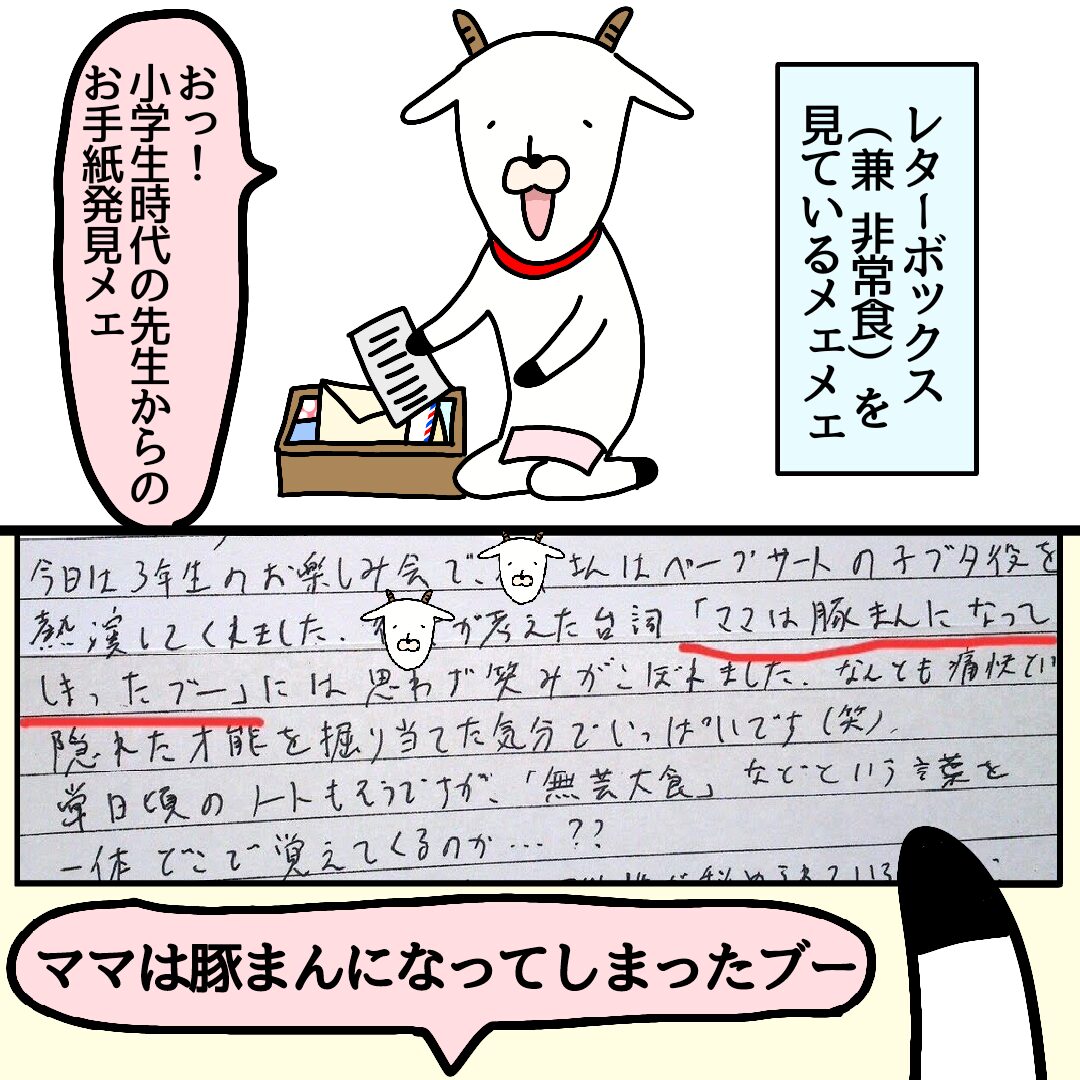 レターボックス
（兼 非常食）を
見ているメェメェ
おっ！
小学生時代の先生からの
お手紙発見メェ
今日は3年生のお楽しみ会で、 さんはペープサートの子ブタ役を
熱演してくれました。 が考えた台詞「ママは豚まんになって
しまったブー」には思わず笑みがこぼれました。なんとも痛快とい
隠れた才能を掘り当てた気分でいっぱいです（笑）。
常日頃のノートもそうですが、「無芸大食」などという言葉を
一体どこで覚えてくるのか…??
ママは豚まんになってしまったブー